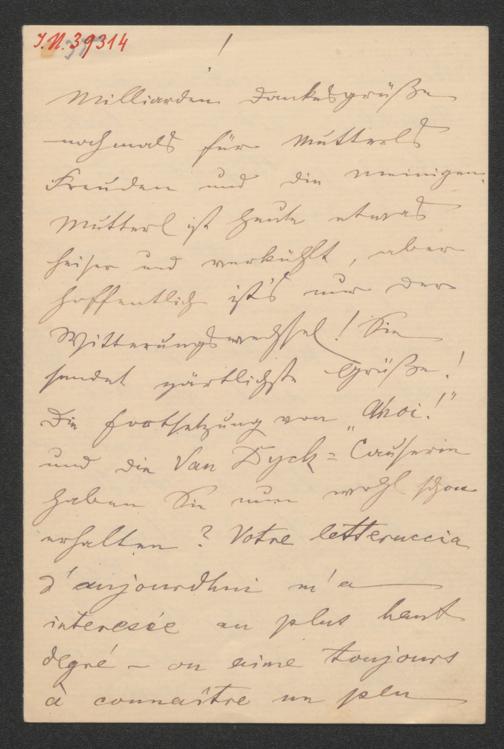 J.N. 39314
!
Milliarden Dankesgrüße
nochmals für Mutterls
Freuden und die meinigen.
Mutterl ist heute etwas
heiser und verkühlt, aber
hoffentlich ist's nur der
Witterungswechsel! Sie
sendet zärtlichste Grüße!
Die Fortsetzung von „Ahoi!"
und die Van Dyck-Causerie
haben Sie nun wohl schon
erhalten? Votre letteruccia
d'aujourdhui m'a
interesée au plus haut
degré – on aime toujours
à connaître un peu